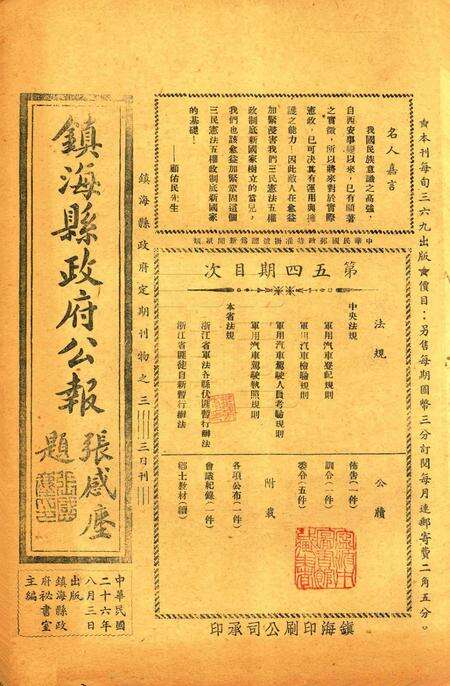 ★本刊每旬三六九出版★價目：另售每期國幣三分訂閱每月連郵寄費二角五分。
名人嘉言
我國民族意識之高強，
自西安事變以來，已有顯著
之實徵，所以將來對於實際
憲政，已可決其有運用與擁
護之能力！因此敵人在愈益
加緊侵害我們三民憲法五權
政制底新國家樹立的當兒，
我們也該愈益加緊鞏固這個
三民憲法五權政制底新國家
的基礎！
——顧佑民先生
中華民國郵政特准掛號認為新聞紙類
第五四期目次
法規
中央法規
軍用汽車登記規則
軍用汽車檢驗規則
軍用汽車駕駛人員考驗規則
軍用汽車駕駛執照規則
本省法規
浙江省軍法各縣代匯暫行辦法
浙江省匪徒自新暫行辦法
公牘
佈告(一件)
訓令(一件)
委令(五件)
附載
各項公布(一件)
會議紀錄(一件)
鄉土教材(續)
鎮海印刷公司承印
鎮海縣政府定期刊物之三
三日刊
鎮海縣政府公報
張感塵題
中華民國
二十六年
八月三日
出版
鎮海縣政
府祕書室
主編